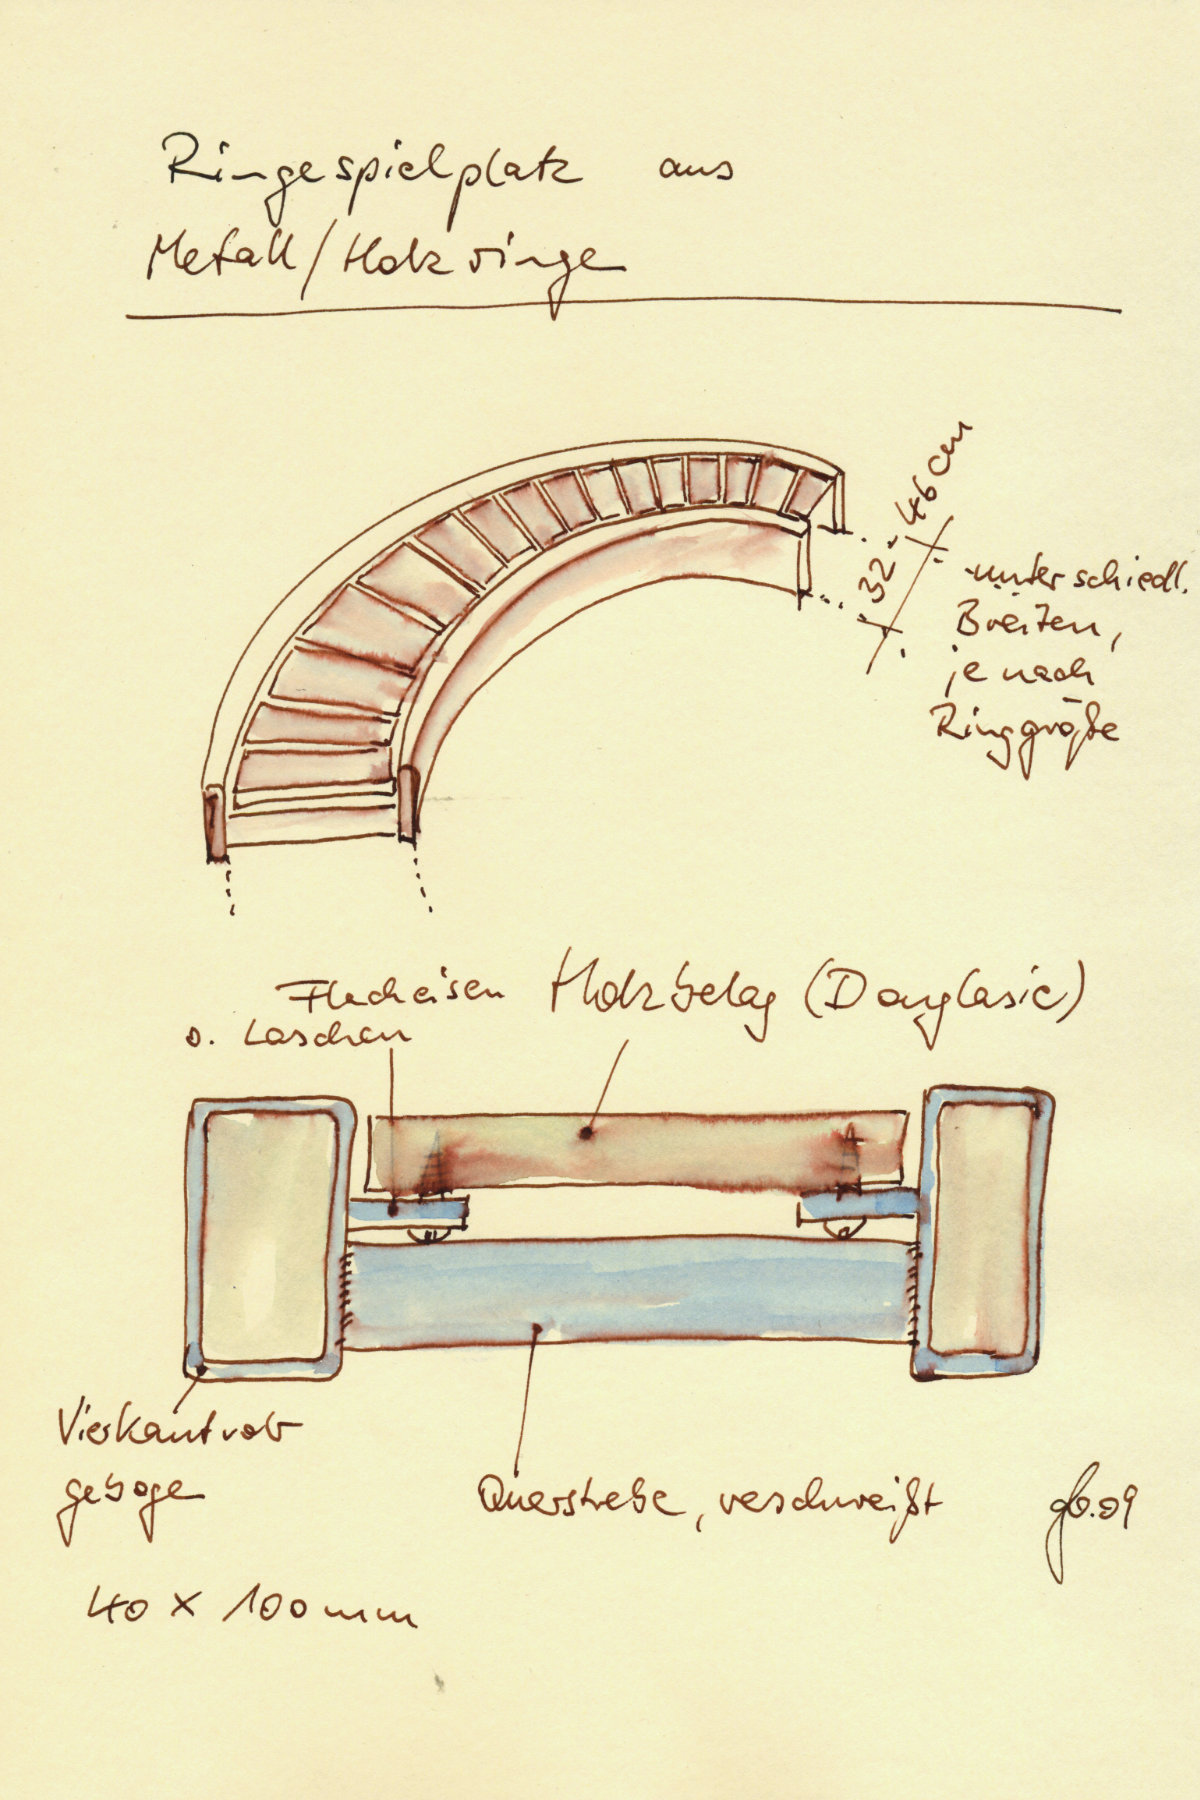 Ringespielplatz aus
Metall/Holzringe
32-46cm
unterschiedl.
Breiten,
je nach
Ringgröße
Flacheisen
o. Laschen
Holzbelag (Douglasie)
Vierkantrohr
geboge
Querstrebe, verschweißt
gb.09
40 x 100mm